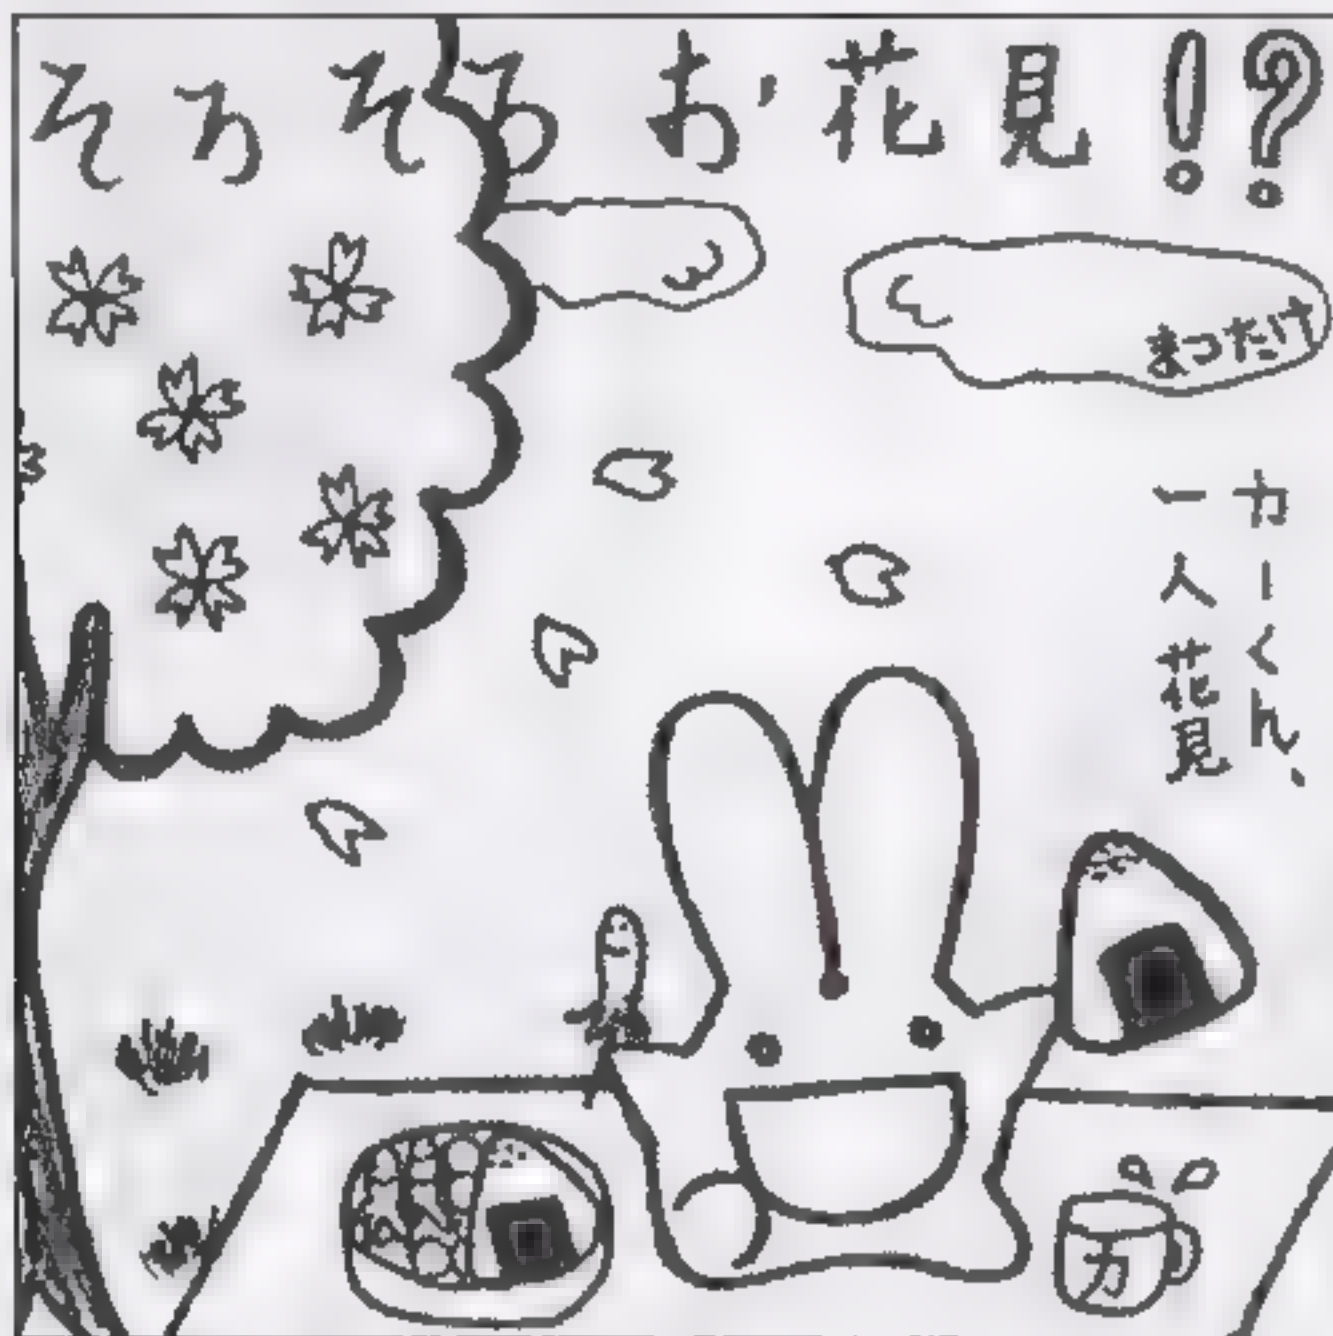 そろそろお花見!?
まつたけ
カーくん、
一人花見
カ